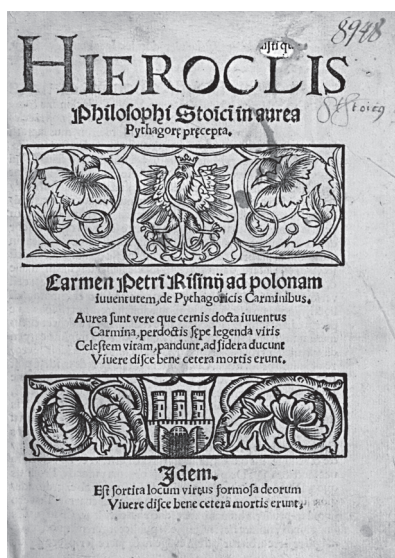 8948
HIEROCLIS
Philosophi Stoici in aurea
Pythagorę pręcepta.
Carmen Petri Risinij ad polonam
iuuentutem, de Pythagoricis Carminibus.
Aurea sunt vere que cernis docta iuuentus
Carmina, perdoctis sępe legenda viris
Celestem vitam, pandunt, ad sidera ducunt
Viuere disce bene cetera mortis erunt.
Idem.
Est sortita locum virtus formosa deorum
Viuere disce bene cetera mortis erunt,